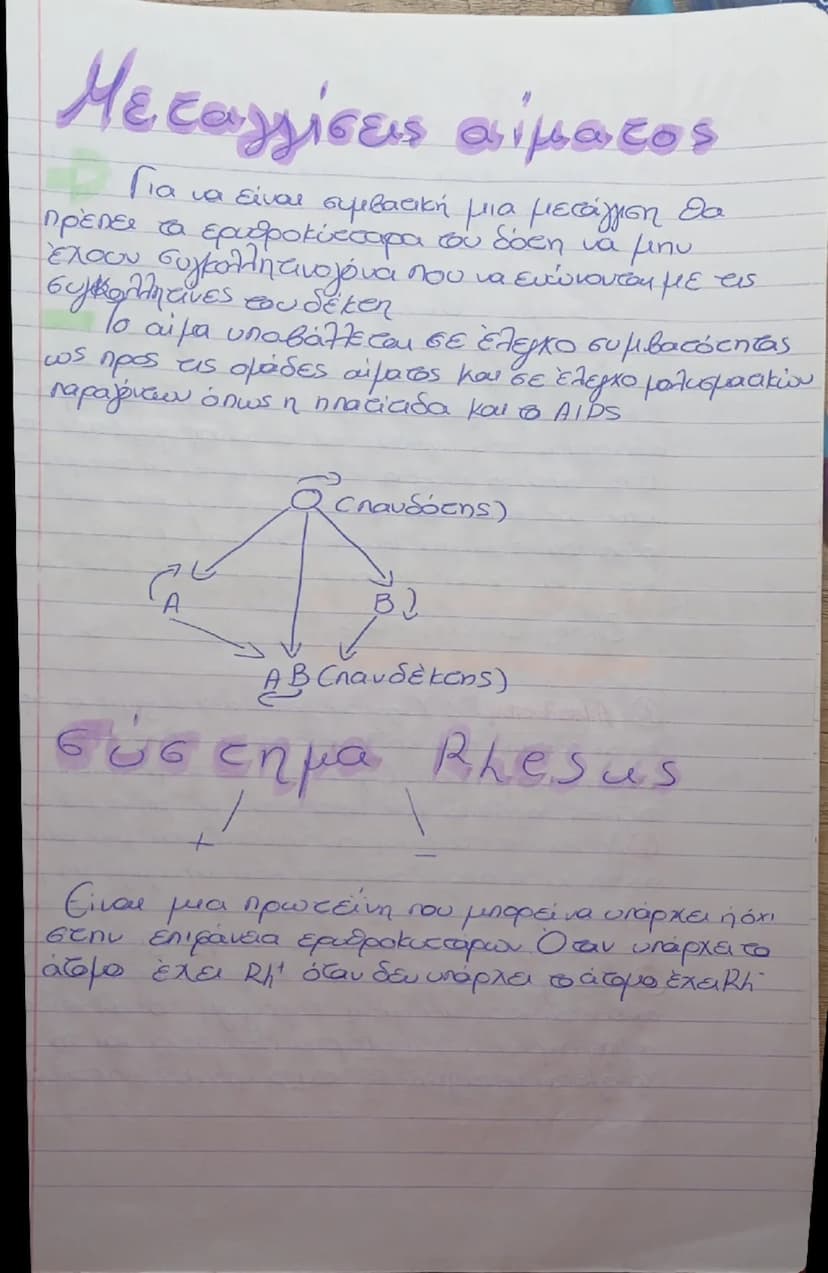 Μεταγγίσεις αίματος
Για να είναι συμβατική μια μετάγγιση θα
πρέπει τα ερυθροκύτταρα του δότη να μην
έχουν συγκολλητινογόνα που να ενώνονται με τις
συγκολλητίνες του δέκτη
Το αίμα υποβάλλεται σε έλεγχο συμβατότητας
ως προς τις ομάδες αίματος και σε έλεγχο μολυσματικών
παραγόντων όπως η ηπατίτιδα και το AIDS
O (πανδότης)
A B
AB (πανδέκτης)
σύστημα Rhesus
+ -
Είναι μια πρωτεΐνη που μπορεί να υπάρχει ή όχι
στην επιφάνεια ερυθροκυττάρων Όταν υπάρχει το
άτομο έχει Rh⁺ όταν δεν υπάρχει το άτομο έχει Rh⁻